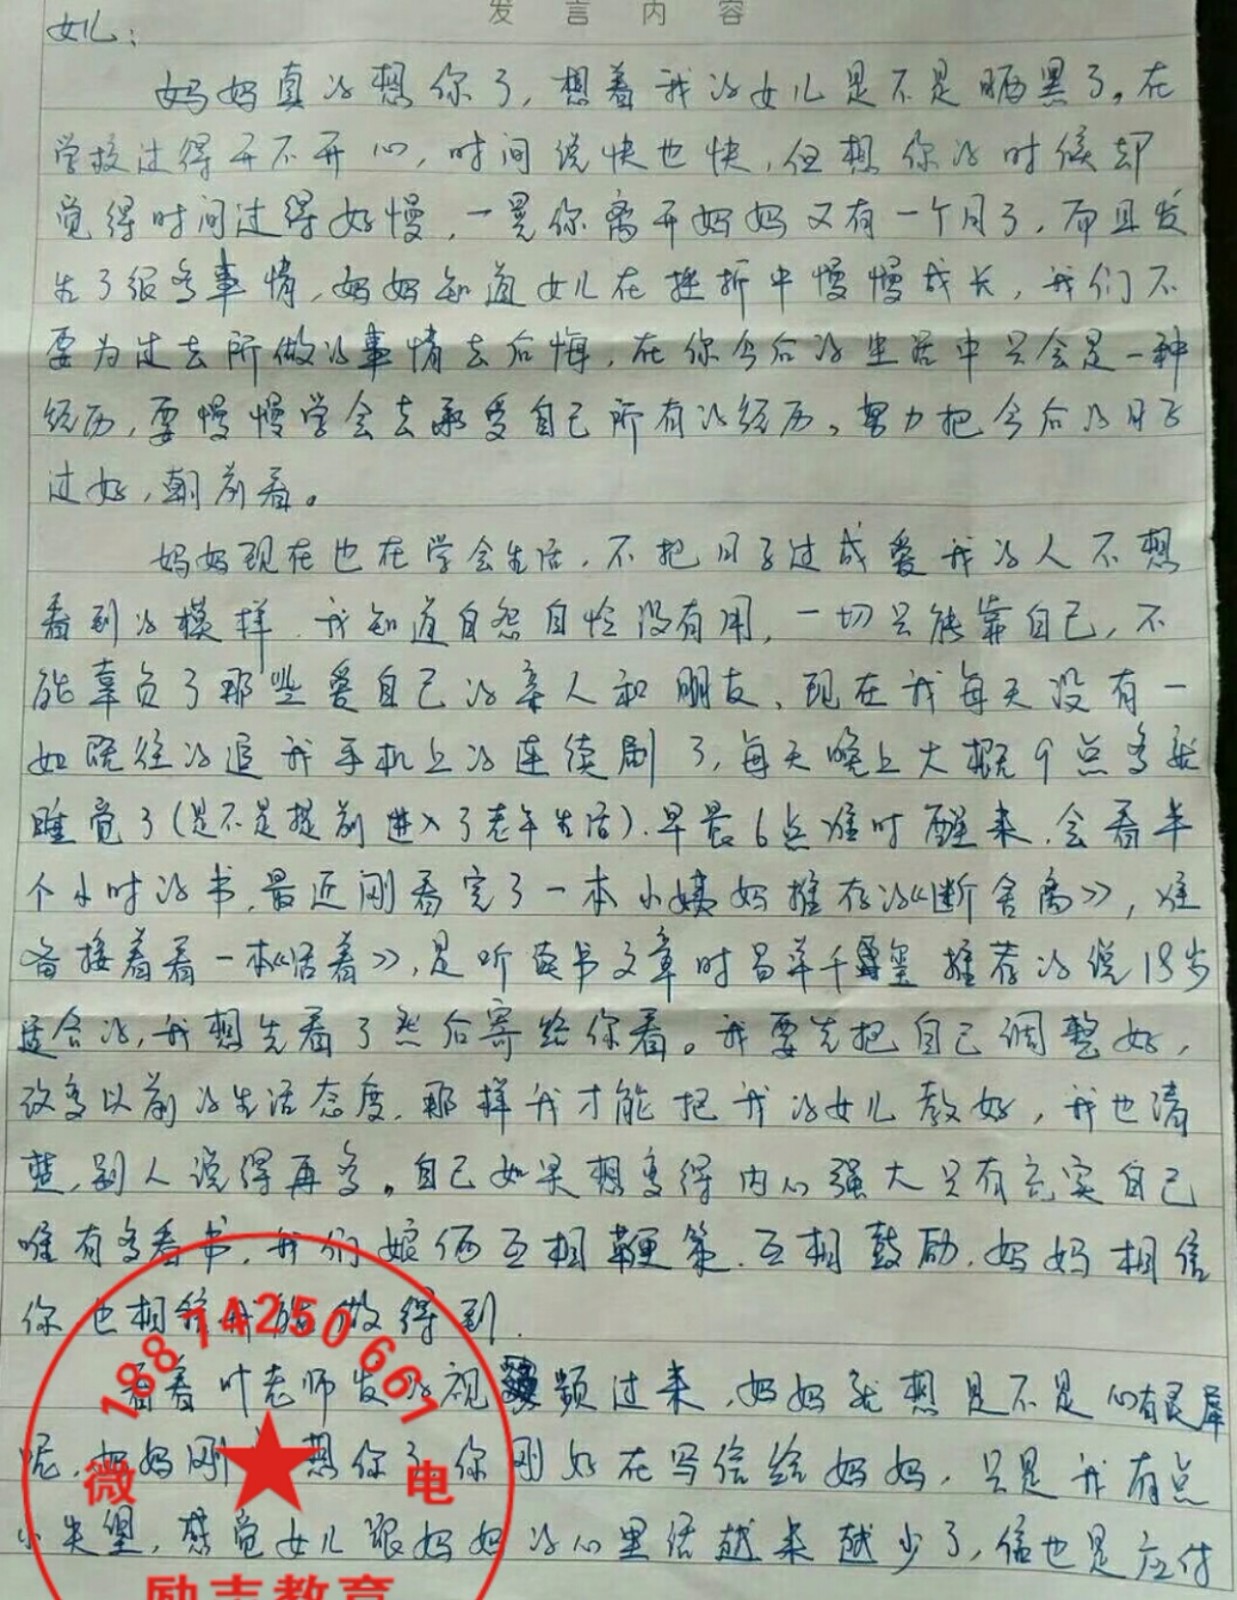 发言内容
女儿：
妈妈真的想你了，想着我的女儿是不是晒黑了。在
学校过得开不开心，时间说快也快，但想你的时候却
觉得时间过得好慢，一晃你离开妈妈又有一个月了，而且发
生了很多事情，妈妈知道女儿在挫折中慢慢成长，我们不
要为过去所做的事情去后悔，在你今后的生活中只会是一种
经历，要慢慢学会去承受自己所有的经历。努力把今后的日子
过好，朝前看。
妈妈现在也在学会生活，不把日子过成爱我的人不想
看到的模样，我知道自怨自怜没有用，一切只能靠自己，不
能辜负了那些爱自己的亲人和朋友，现在我每天没有一
如既往的追我手机上的连续剧了，每天晚上大概9点多就
睡觉了(是不是提前进入了老年生活)．早晨6点准时醒来，会看半
个小时的书，最近刚看完了一本小姨妈推荐的《断舍离》，准
备接着看一本《活着》，是听读书文章时易烊千玺推荐的说18岁
适合的，我想先看了然后寄给你看。我要先把自己调整好，
改变以前的生活态度，那样我才能把我的女儿教好，我也清
楚，别人说得再多。自己如果想变得内心强大只有充实自己
唯有多看书，我们娘俩互相鞭策．互相鼓励．妈妈相信
你也相信我能做得到．
看着叶老师发的视频过来，妈妈就想是不是心有灵犀
呢，妈妈刚想你了你刚好在写信给妈妈，只是我有点
小失望，感觉女儿跟妈妈的心里话越来越少了，信也是应付
18874250661
微电
励志教育